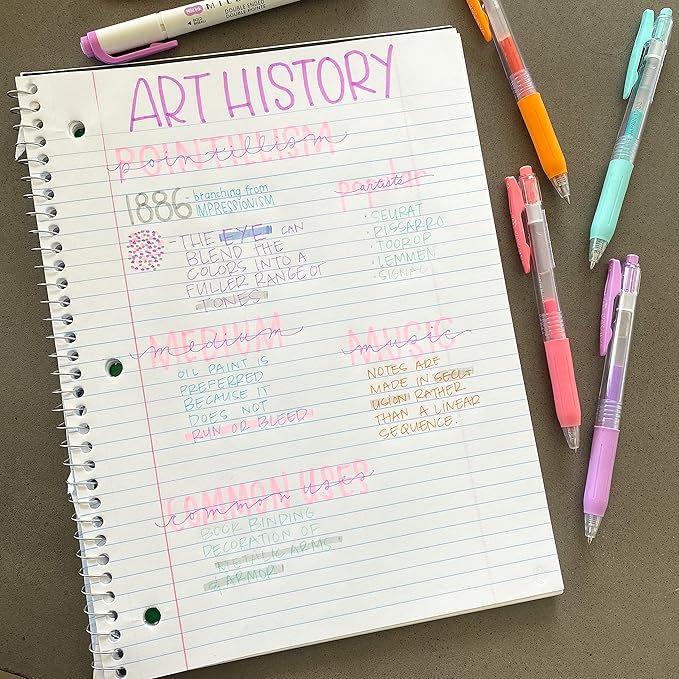 MILDLINER
DOUBLE ENDED
ART HISTORY
POINTILLISM
pointillism
1886 - branching from
IMPRESSIONISM
- THE EYE CAN
BLEND THE
COLORS INTO A
FULLER RANGE OF
TONES
popular
artists
· SEURAT
· PISSARRO
· TOOROP
· LEMMEN
· SIGNAC
MEDIUM
medium
OIL PAINT IS
PREFERRED
BECAUSE IT
DOES NOT
RUN OR BLEED
MUSIC
music
NOTES ARE
MADE IN SECL-
USION RATHER
THAN A LINEAR
SEQUENCE.
COMMON USES
common uses
BOOK BINDING
DECORATION OF
METALIC ARMS
& ARMOR